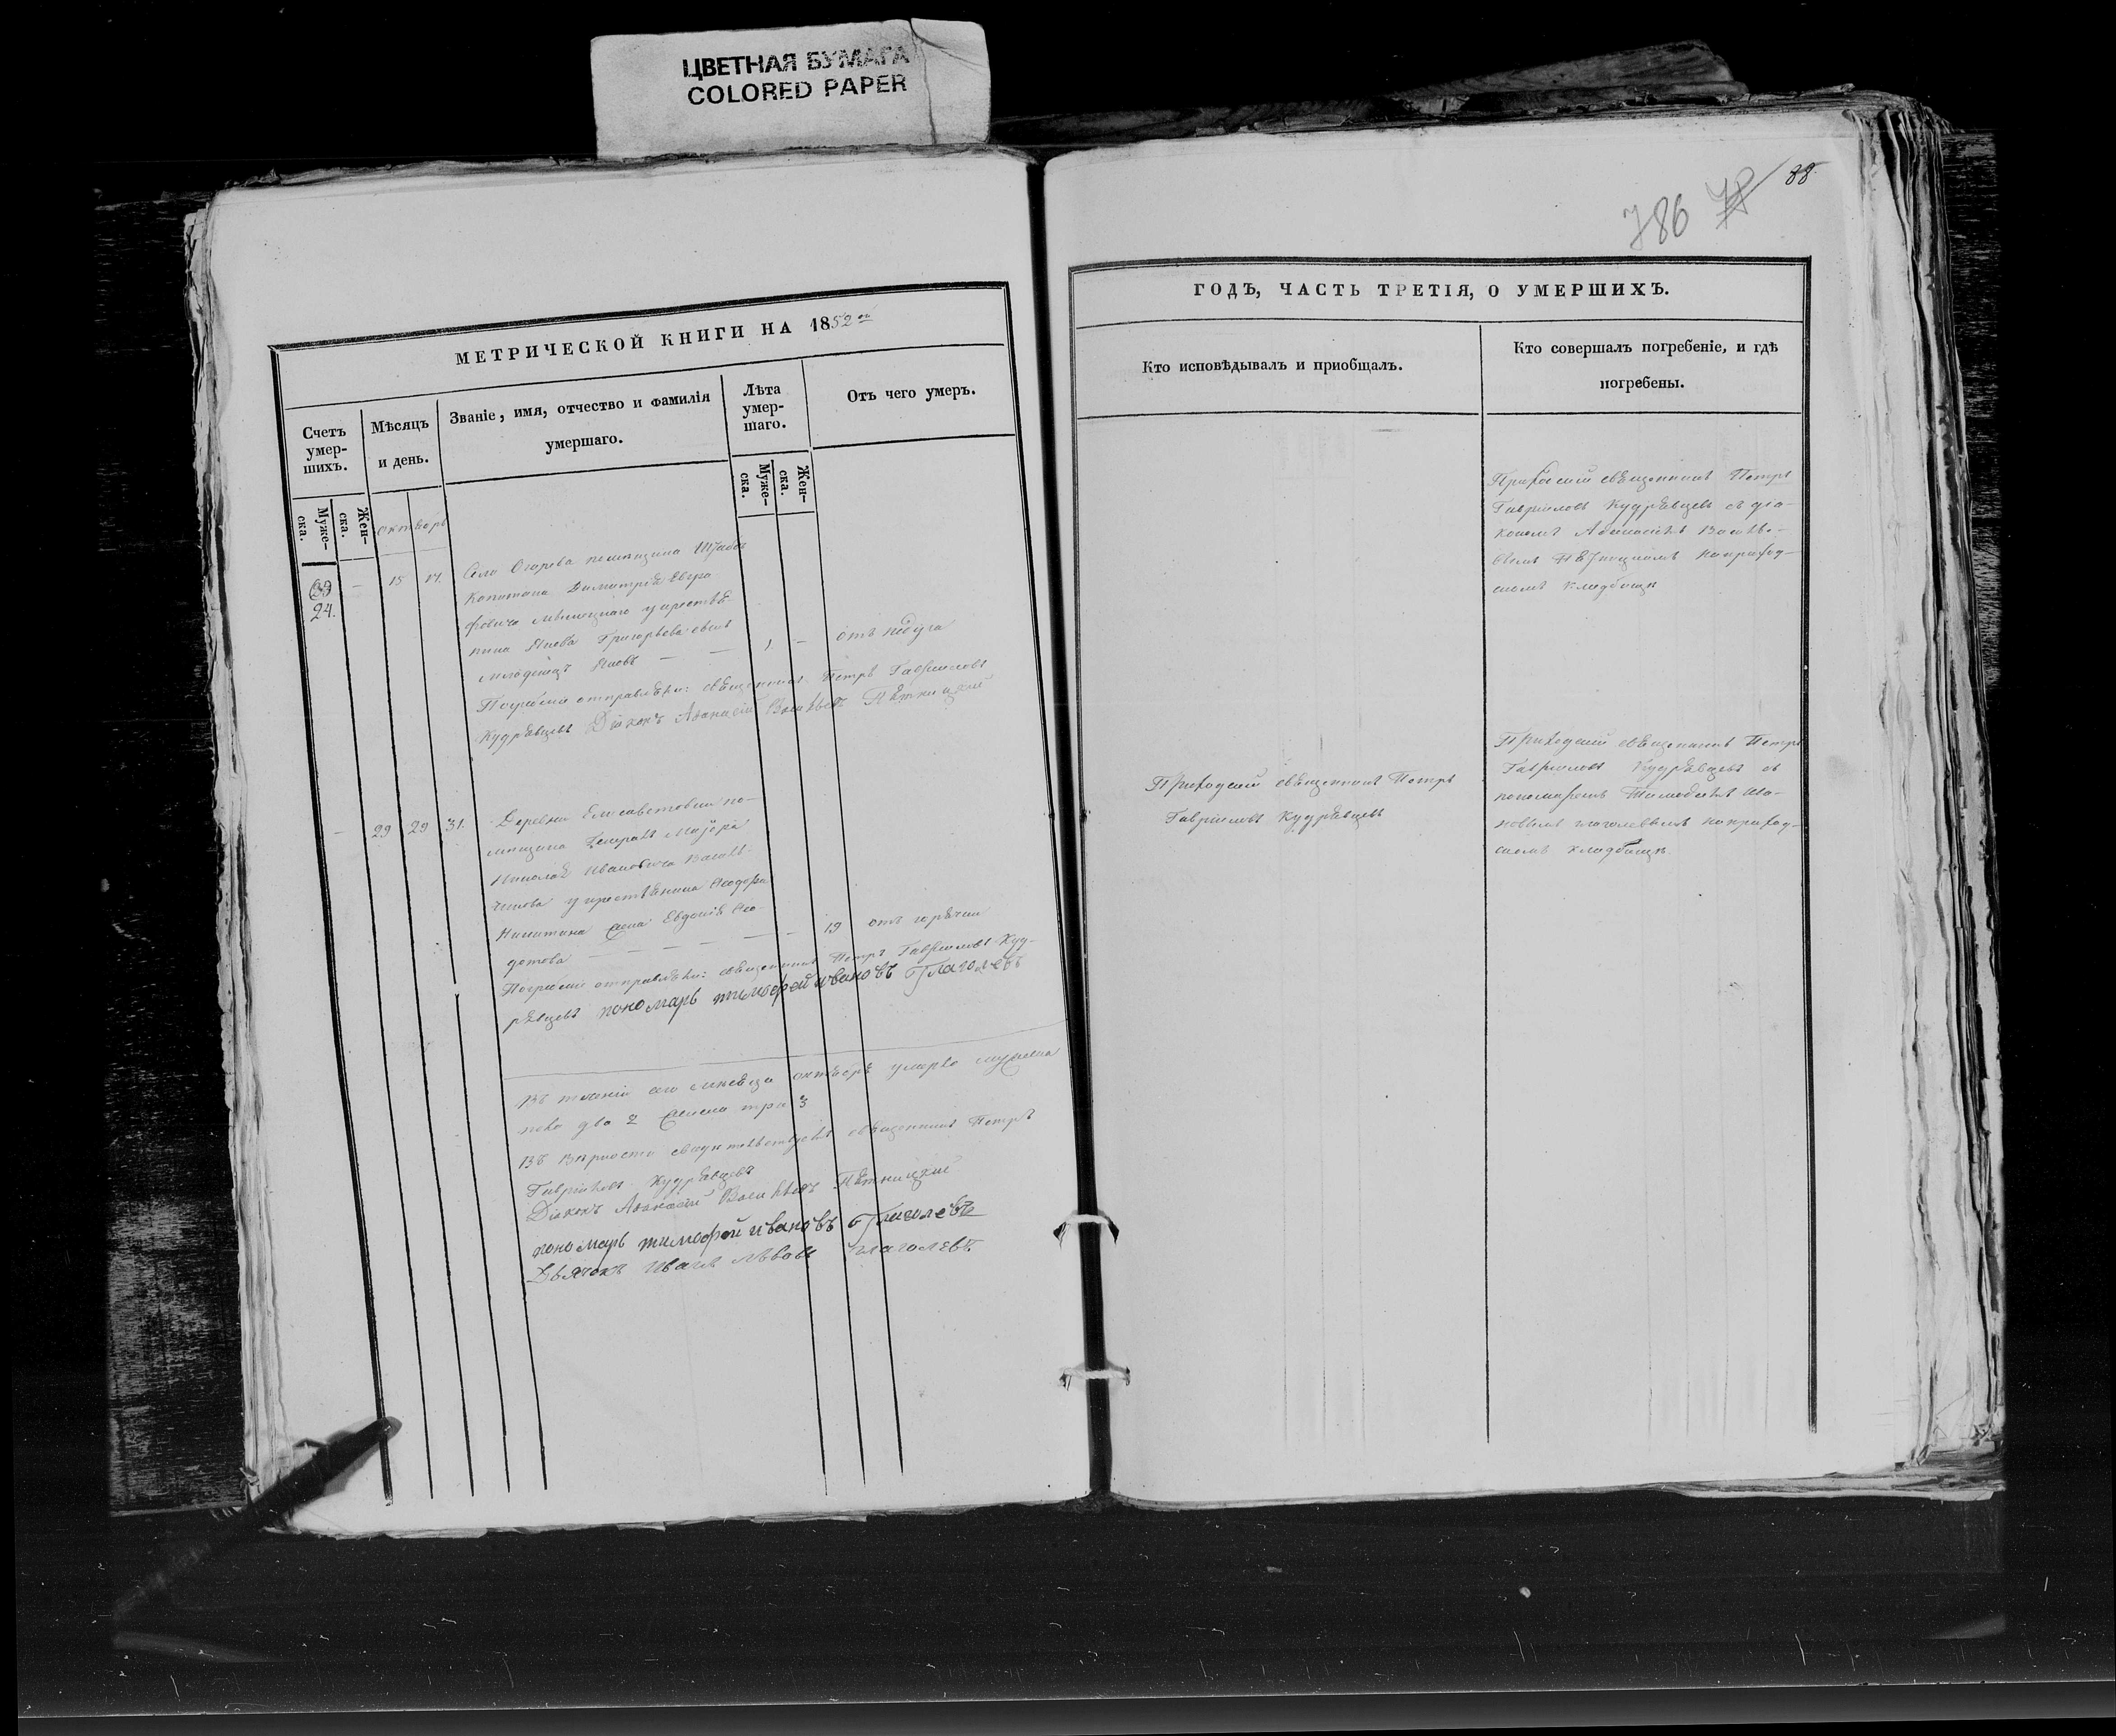 ЦВЕТНАЯ БУМАГА
COLORED PAPER
МЕТРИЧЕСКОЙ КНИГИ НА 1852 ой
Счетъ умер-шихъ.
Мѣсяцъ и день.
Званіе, имя, отчество и фамилія умершаго.
Лѣта умер-шаго.
Отъ чего умеръ.
Муже-ска.
Жен-ска.
Муже-ска.
Жен-ска.
октябрь
24. — 15 17.
Села Огарева помѣщика Штабсъ
Капитана Димитрія Евгра
фовича
Григорьева сынъ
младенецъ — — 1 — отъ недуга
Погребеніе отправляли: священникъ Петръ Гавриловъ
Кудрявцевъ Діаконъ Аѳанасій Васильевъ Пятницкій
— 29 29 31.
Деревни Елисаветовки по-
мѣщика Генералъ Маіора
Николая Ивановича
крестьянина Ѳедора
Никитина жена Евдокія Ѳео-
дотова — — — — — 19 отъ горячки
Погребеніе отправляли: священникъ Петръ Гавриловъ Куд-
рявцевъ пономарь тимофей ивановъ Глаголевъ
Въ теченіи сего мѣсяца октября умерло мужеска
пола два 2 женска три 3
Въ вѣрности свидѣтельствуемъ священникъ Петръ
Гавриловъ Кудрявцевъ
Діаконъ Аѳанасій Васильевъ Пятницкій
пономарь тимофей ивановъ Глаголевъ
Дьячокъ Иванъ Львовъ глаголевъ
786
88
ГОДЪ, ЧАСТЬ ТРЕТІЯ, О УМЕРШИХЪ.
Кто исповѣдывалъ и приобщалъ.
Кто совершалъ погребеніе, и гдѣ
погребены.
Приходскій священникъ Петръ
Гавриловъ Кудрявцевъ съ діа-
кономъ Аѳанасіемъ Василье-
вымъ Пятницкимъ на приход-
скомъ кладбищѣ
Приходскій священникъ Петръ
Гавриловъ Кудрявцевъ
Приходскій священникъ Петръ
Гавриловъ Кудрявцевъ съ
пономаремъ Тимофеемъ Ива-
новымъ глаголевымъ на приход-
скомъ кладбищѣ.